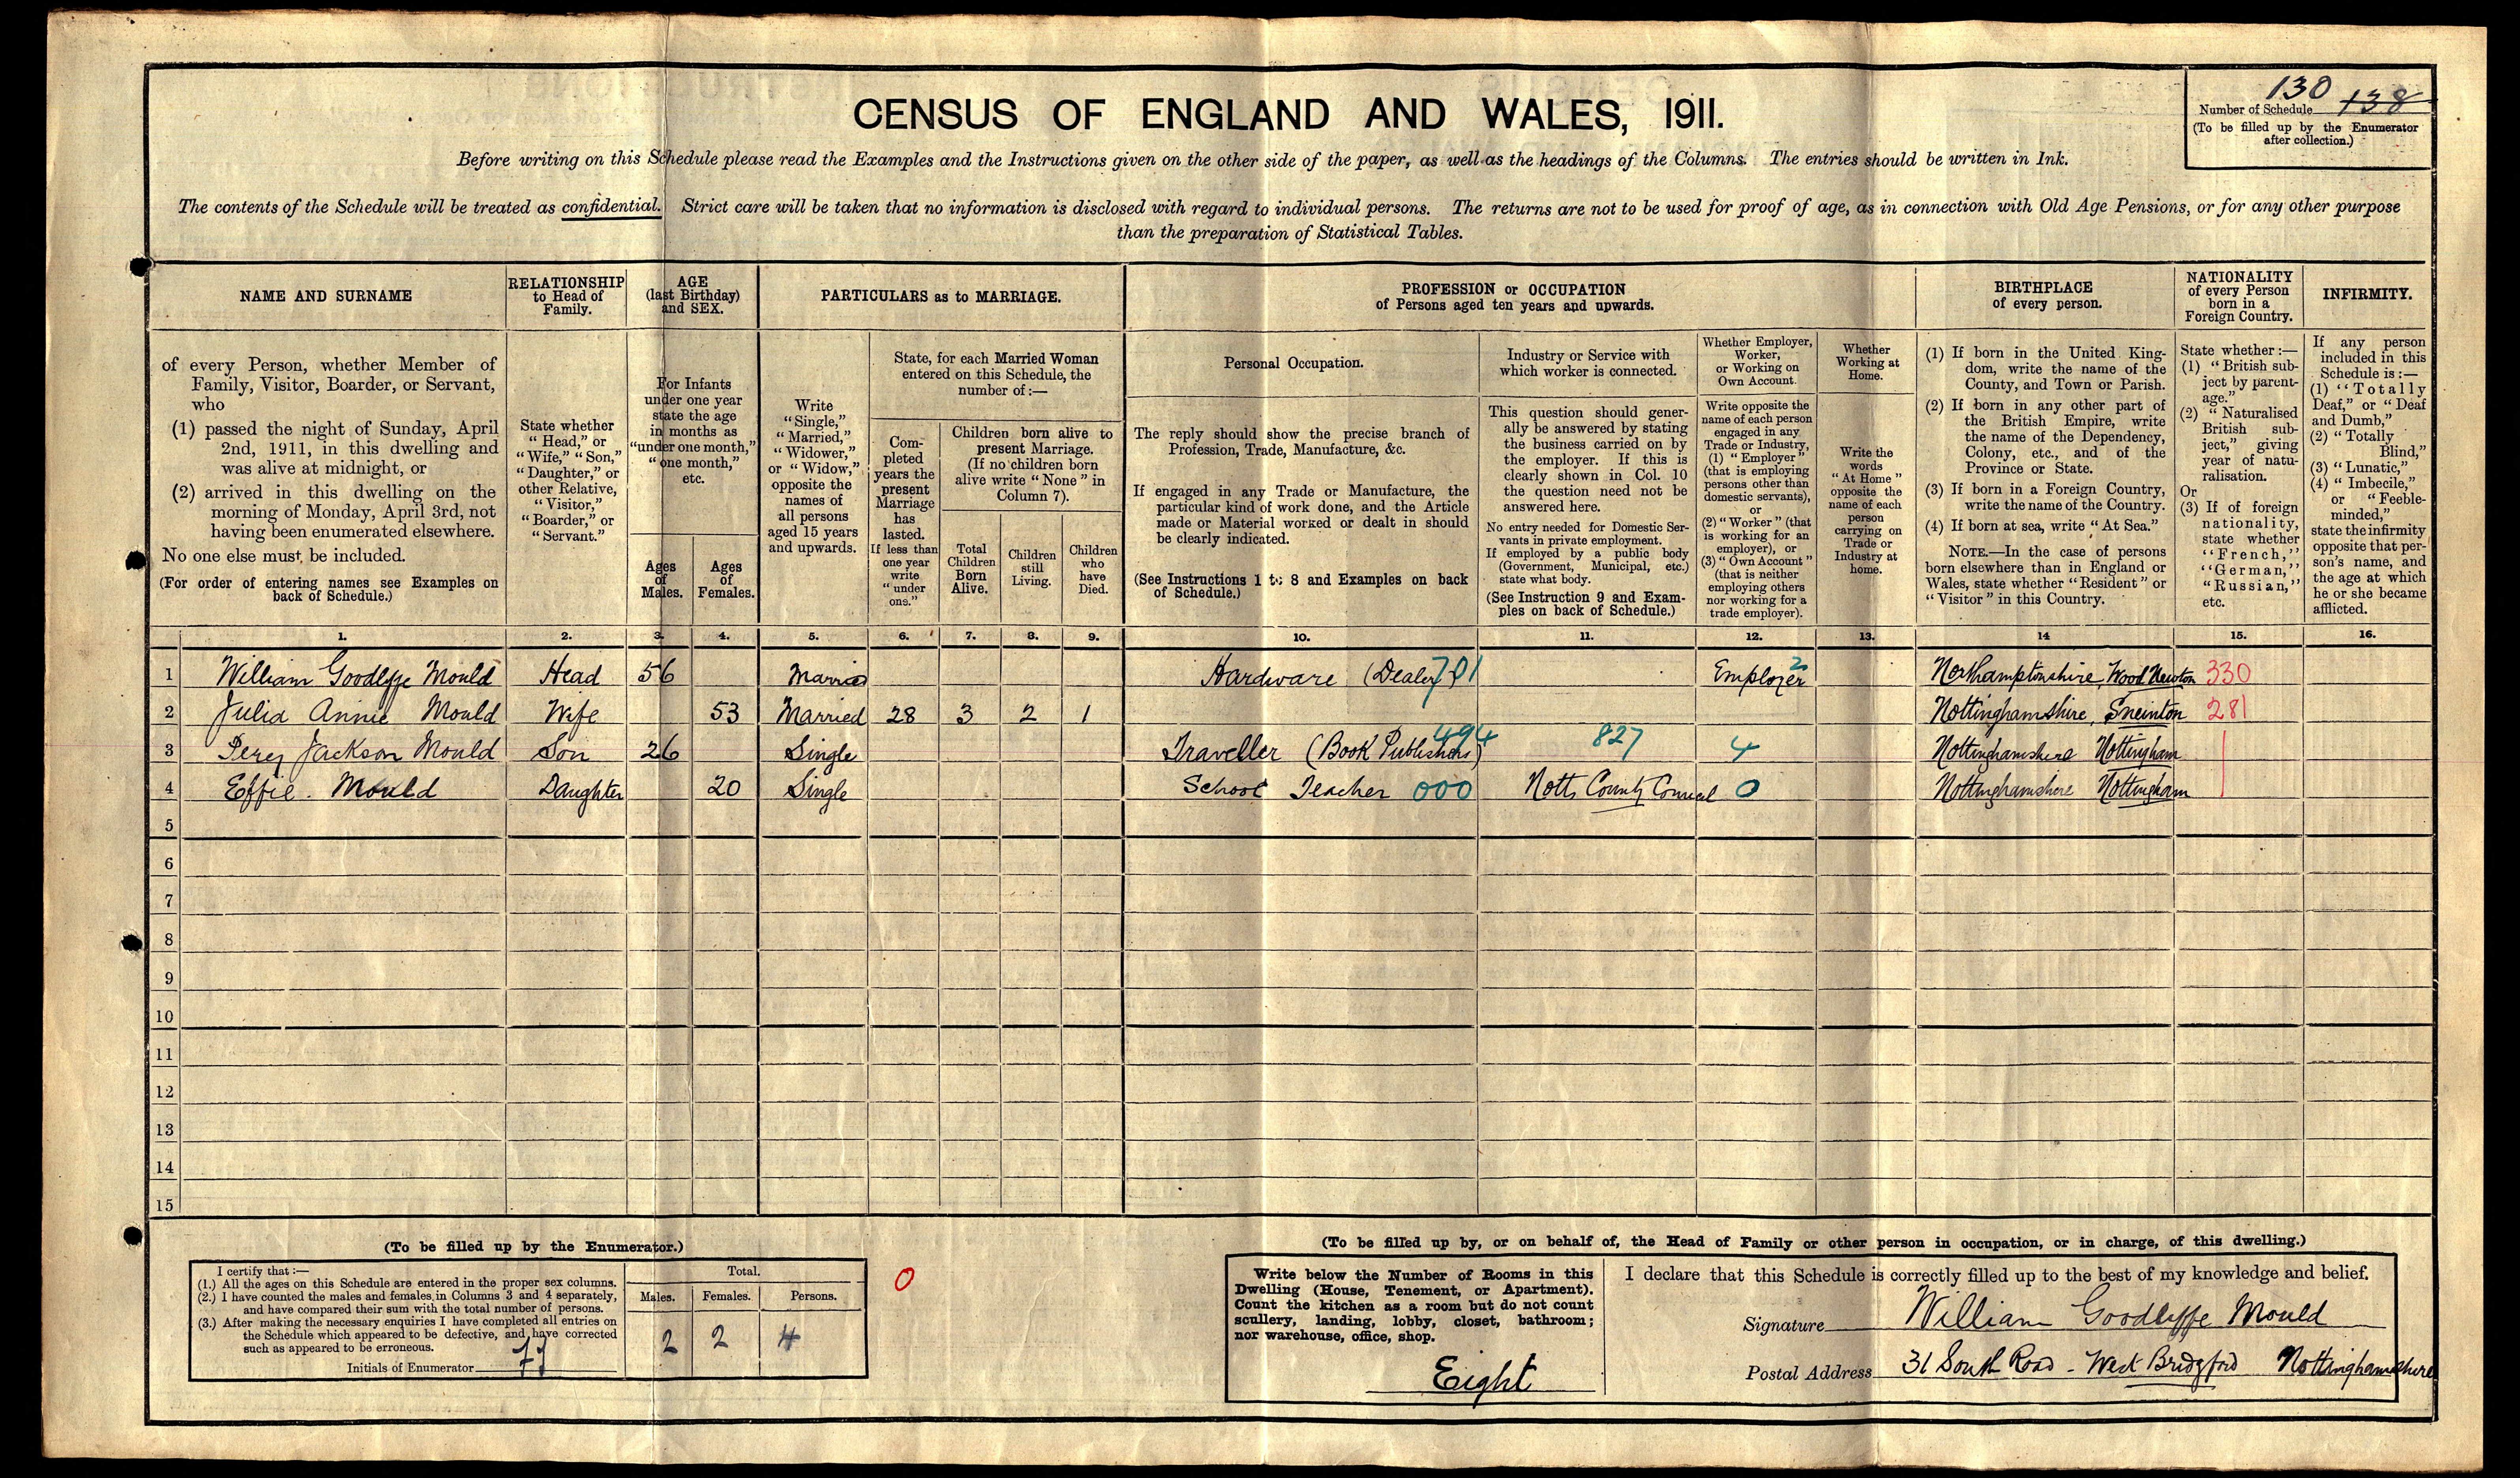 130
Number of Schedule 138
(To be filled up by the Enumerator
after collection.)
CENSUS OF ENGLAND AND WALES, 1911.
Before writing on this Schedule please read the Examples and the Instructions given on the other side of the paper, as well as the headings of the Columns. The entries should be written in Ink.
The contents of the Schedule will be treated as confidential. Strict care will be taken that no information is disclosed with regard to individual persons. The returns are not to be used for proof of age, as in connection with Old Age Pensions, or for any other purpose
than the preparation of Statistical Tables.
NAME AND SURNAME
of every Person, whether Member of
Family, Visitor, Boarder, or Servant,
who
(1) passed the night of Sunday, April
2nd, 1911, in this dwelling and
was alive at midnight, or
(2) arrived in this dwelling on the
morning of Monday, April 3rd, not
having been enumerated elsewhere.
No one else must be included.
(For order of entering names see Examples on
back of Schedule.)
RELATIONSHIP
to Head of
Family.
State whether
"Head," or
"Wife," "Son,"
"Daughter," or
other Relative,
"Visitor,"
"Boarder," or
"Servant."
AGE
(last Birthday)
and SEX.
For Infants
under one year
state the age
in months as
"under one month,"
"one month,"
etc.
Ages
of
Males.
Ages
of
Females.
PARTICULARS as to MARRIAGE.
Write
"Single,"
"Married,"
"Widower,"
or "Widow,"
opposite the
names of
all persons
aged 15 years
and upwards.
State, for each Married Woman
entered on this Schedule, the
number of:—
Com-
pleted
years the
present
Marriage
has
lasted.
If less than
one year
write
"under
one."
Children born alive to
present Marriage.
(If no children born
alive write "None" in
Column 7).
Total
Children
Born
Alive.
Children
still
Living.
Children
who
have
Died.
PROFESSION or OCCUPATION
of Persons aged ten years and upwards.
Personal Occupation.
The reply should show the precise branch of
Profession, Trade, Manufacture, &c.
If engaged in any Trade or Manufacture, the
particular kind of work done, and the Article
made or Material worked or dealt in should
be clearly indicated.
(See Instructions 1 to 8 and Examples on back
of Schedule.)
Industry or Service with
which worker is connected.
This question should gener-
ally be answered by stating
the business carried on by
the employer. If this is
clearly shown in Col. 10
the question need not be
answered here.
No entry needed for Domestic Ser-
vants in private employment.
If employed by a public body
(Government, Municipal, etc.)
state what body.
(See Instruction 9 and Exam-
ples on back of Schedule.)
Whether Employer,
Worker,
or Working on
Own Account.
Write opposite the
name of each person
engaged in any
Trade or Industry,
(1) "Employer"
(that is employing
persons other than
domestic servants),
or
(2) "Worker" (that
is working for an
employer), or
(3) "Own Account"
(that is neither
employing others
nor working for a
trade employer).
Whether
Working at
Home.
Write the
words
"At Home"
opposite the
name of each
person
carrying on
Trade or
Industry at
home.
BIRTHPLACE
of every person.
(1) If born in the United King-
dom, write the name of the
County, and Town or Parish.
(2) If born in any other part of
the British Empire, write
the name of the Dependency,
Colony, etc., and of the
Province or State.
(3) If born in a Foreign Country,
write the name of the Country.
(4) If born at sea, write "At Sea."
NOTE.—In the case of persons
born elsewhere than in England or
Wales, state whether "Resident" or
"Visitor" in this Country.
NATIONALITY
of every Person
born in a
Foreign Country.
State whether:—
(1) "British sub-
ject by parent-
age."
(2) "Naturalised
British sub-
ject," giving
year of natu-
ralisation.
Or
(3) If of foreign
nationality,
state whether
"French,"
"German,"
"Russian,"
etc.
INFIRMITY.
If any person
included in this
Schedule is:—
(1) "Totally
Deaf," or "Deaf
and Dumb,"
(2) "Totally
Blind,"
(3) "Lunatic,"
(4) "Imbecile,"
or "Feeble-
minded,"
state the infirmity
opposite that per-
son's name, and
the age at which
he or she became
afflicted.
1. 2. 3. 4. 5. 6. 7. 8. 9. 10. 11. 12. 13. 14 15. 16.
1 William Goodlyffe Mould Head 56 Married Hardware (Dealer) 701 Employer 2 Northamptonshire, Wood Newton 330
2 Julia Annie Mould Wife 53 Married 28 3 2 1 Nottinghamshire, Sneinton 281
3 Percy Jackson Mould Son 26 Single Traveller (Book Publishers) 494 827 4 Nottinghamshire Nottingham
4 Effie. Mould Daughter 20 Single School Teacher 000 Notts County Council 0 Nottinghamshire Nottingham
5
6
7
8
9
10
11
12
13
14
15
(To be filled up by the Enumerator.)
I certify that:—
(1.) All the ages on this Schedule are entered in the proper sex columns.
(2.) I have counted the males and females in Columns 3 and 4 separately,
and have compared their sum with the total number of persons.
(3.) After making the necessary enquiries I have completed all entries on
the Schedule which appeared to be defective, and have corrected
such as appeared to be erroneous.
Initials of Enumerator
Total.
Males. Females. Persons.
2 2 4
0
(To be filled up by, or on behalf of, the Head of Family or other person in occupation, or in charge, of this dwelling.)
Write below the Number of Rooms in this
Dwelling (House, Tenement, or Apartment).
Count the kitchen as a room but do not count
scullery, landing, lobby, closet, bathroom;
nor warehouse, office, shop.
Eight
I declare that this Schedule is correctly filled up to the best of my knowledge and belief.
Signature William Goodlyffe Mould
Postal Address 31 South Road - West Bridgford Nottinghamshire